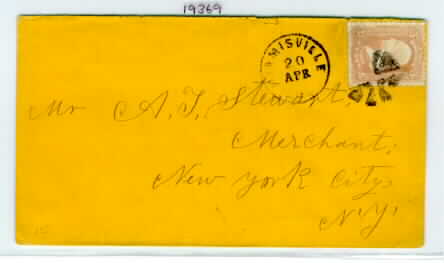 19369
MISVILLE
20
APR
Mr A. T. Stewart,
Merchant,
New York City,
N.Y.